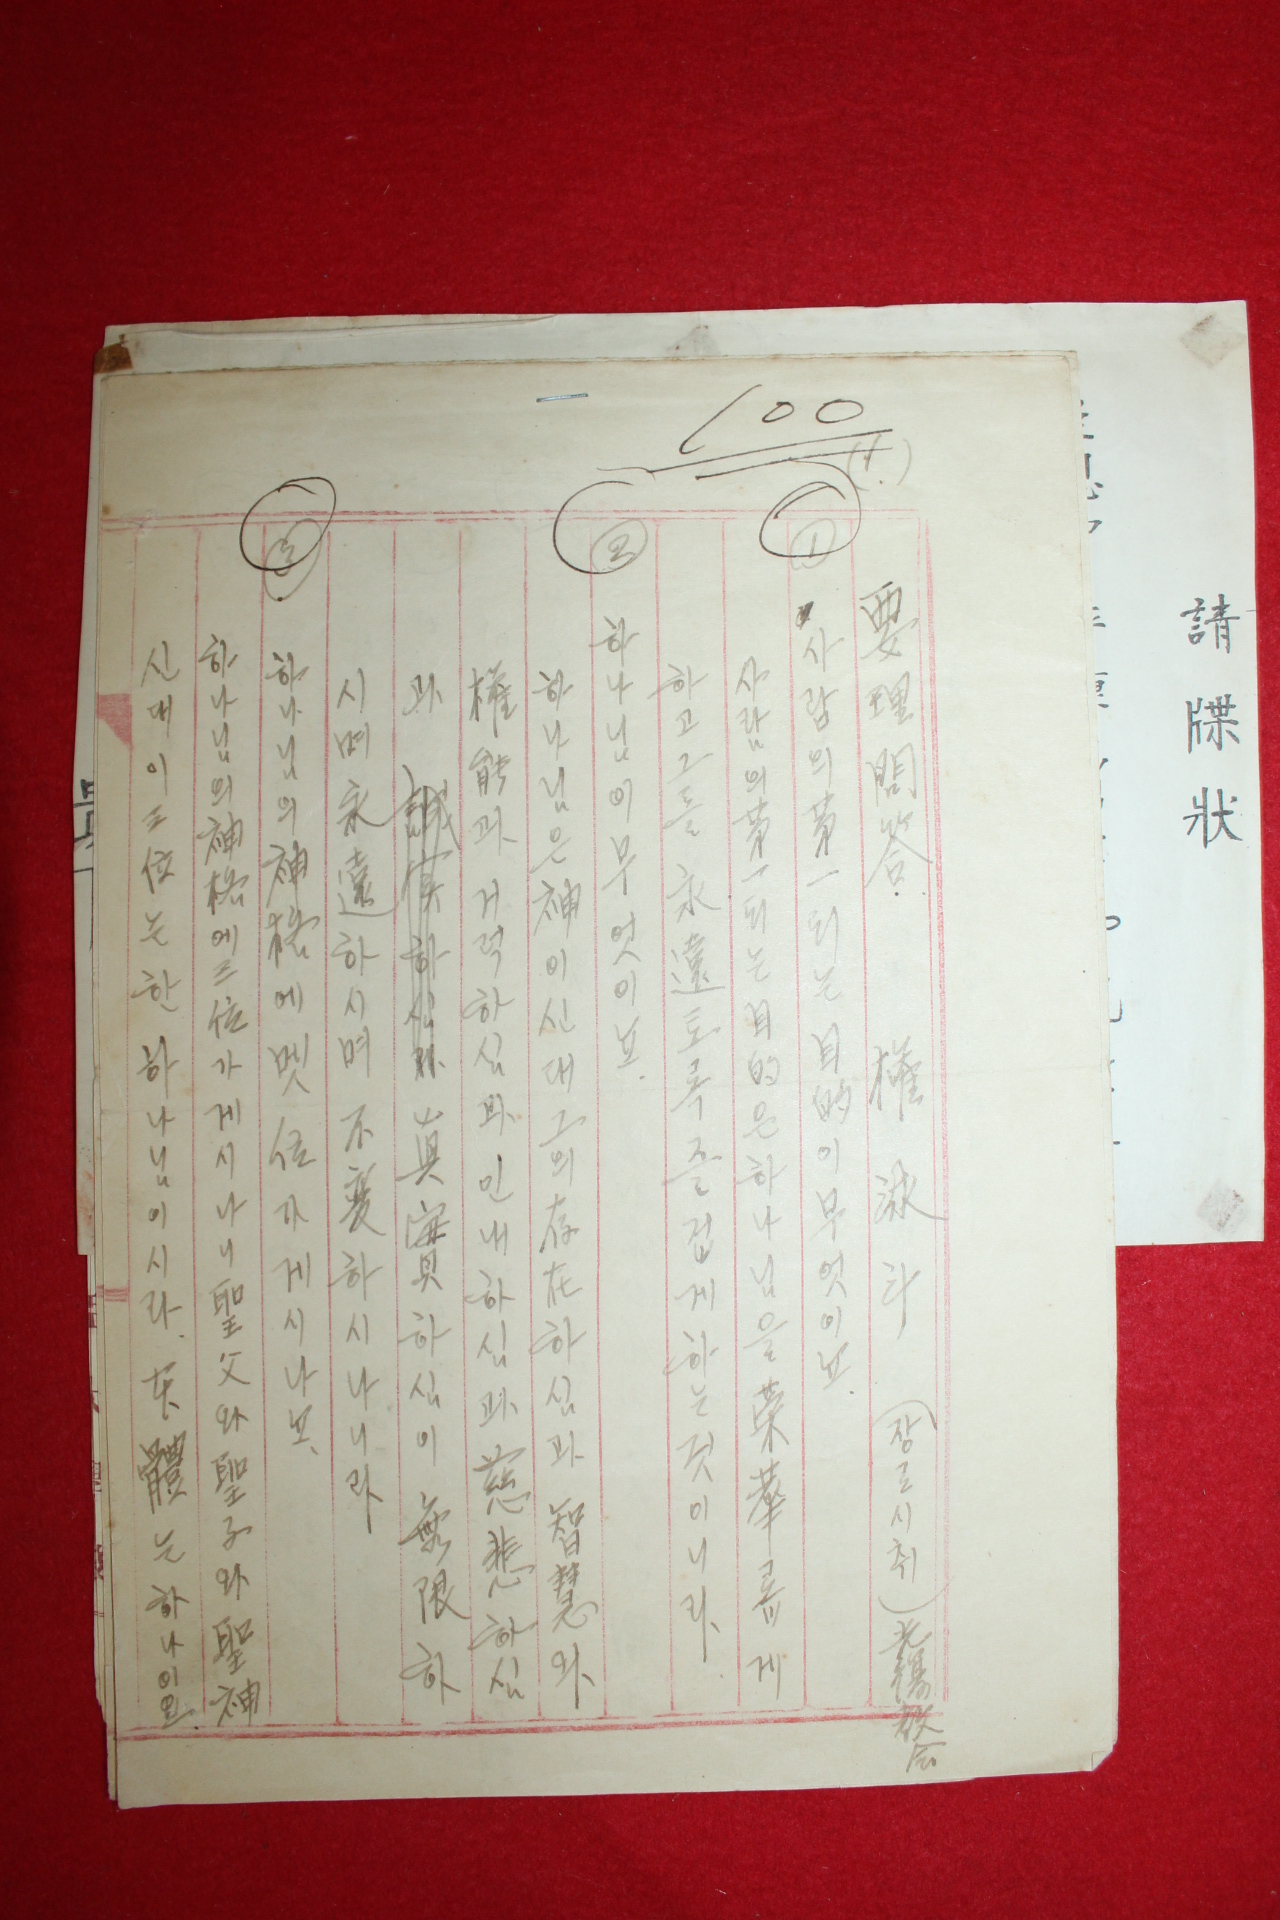 請牒狀
100
(1.)
要理問答. 權 渁 斗 (장로시취)
① 사람의 第一되는 目的이 무엇이뇨.
사람의 第一되는 目的은 하나님을 榮華롭게
하고 그를 永遠토록 즐겁게 하는 것이니라.
② 하나님이 무엇이뇨.
하나님은 神이신대 그의 存在하심과 智慧와
權能과 거럭하심과 인내하심과 慈悲하심
과 誠実하심과 眞實하심이 無限하
시며 永遠하시며 不變하시나니라
③ 하나님의 神格에 멧 位가 게시나뇨.
하나님의 神格에 三位가 게시나니 聖父와 聖子와 聖神
신대 이 三位는 한 하나님이시라. 本體는 하나이요.